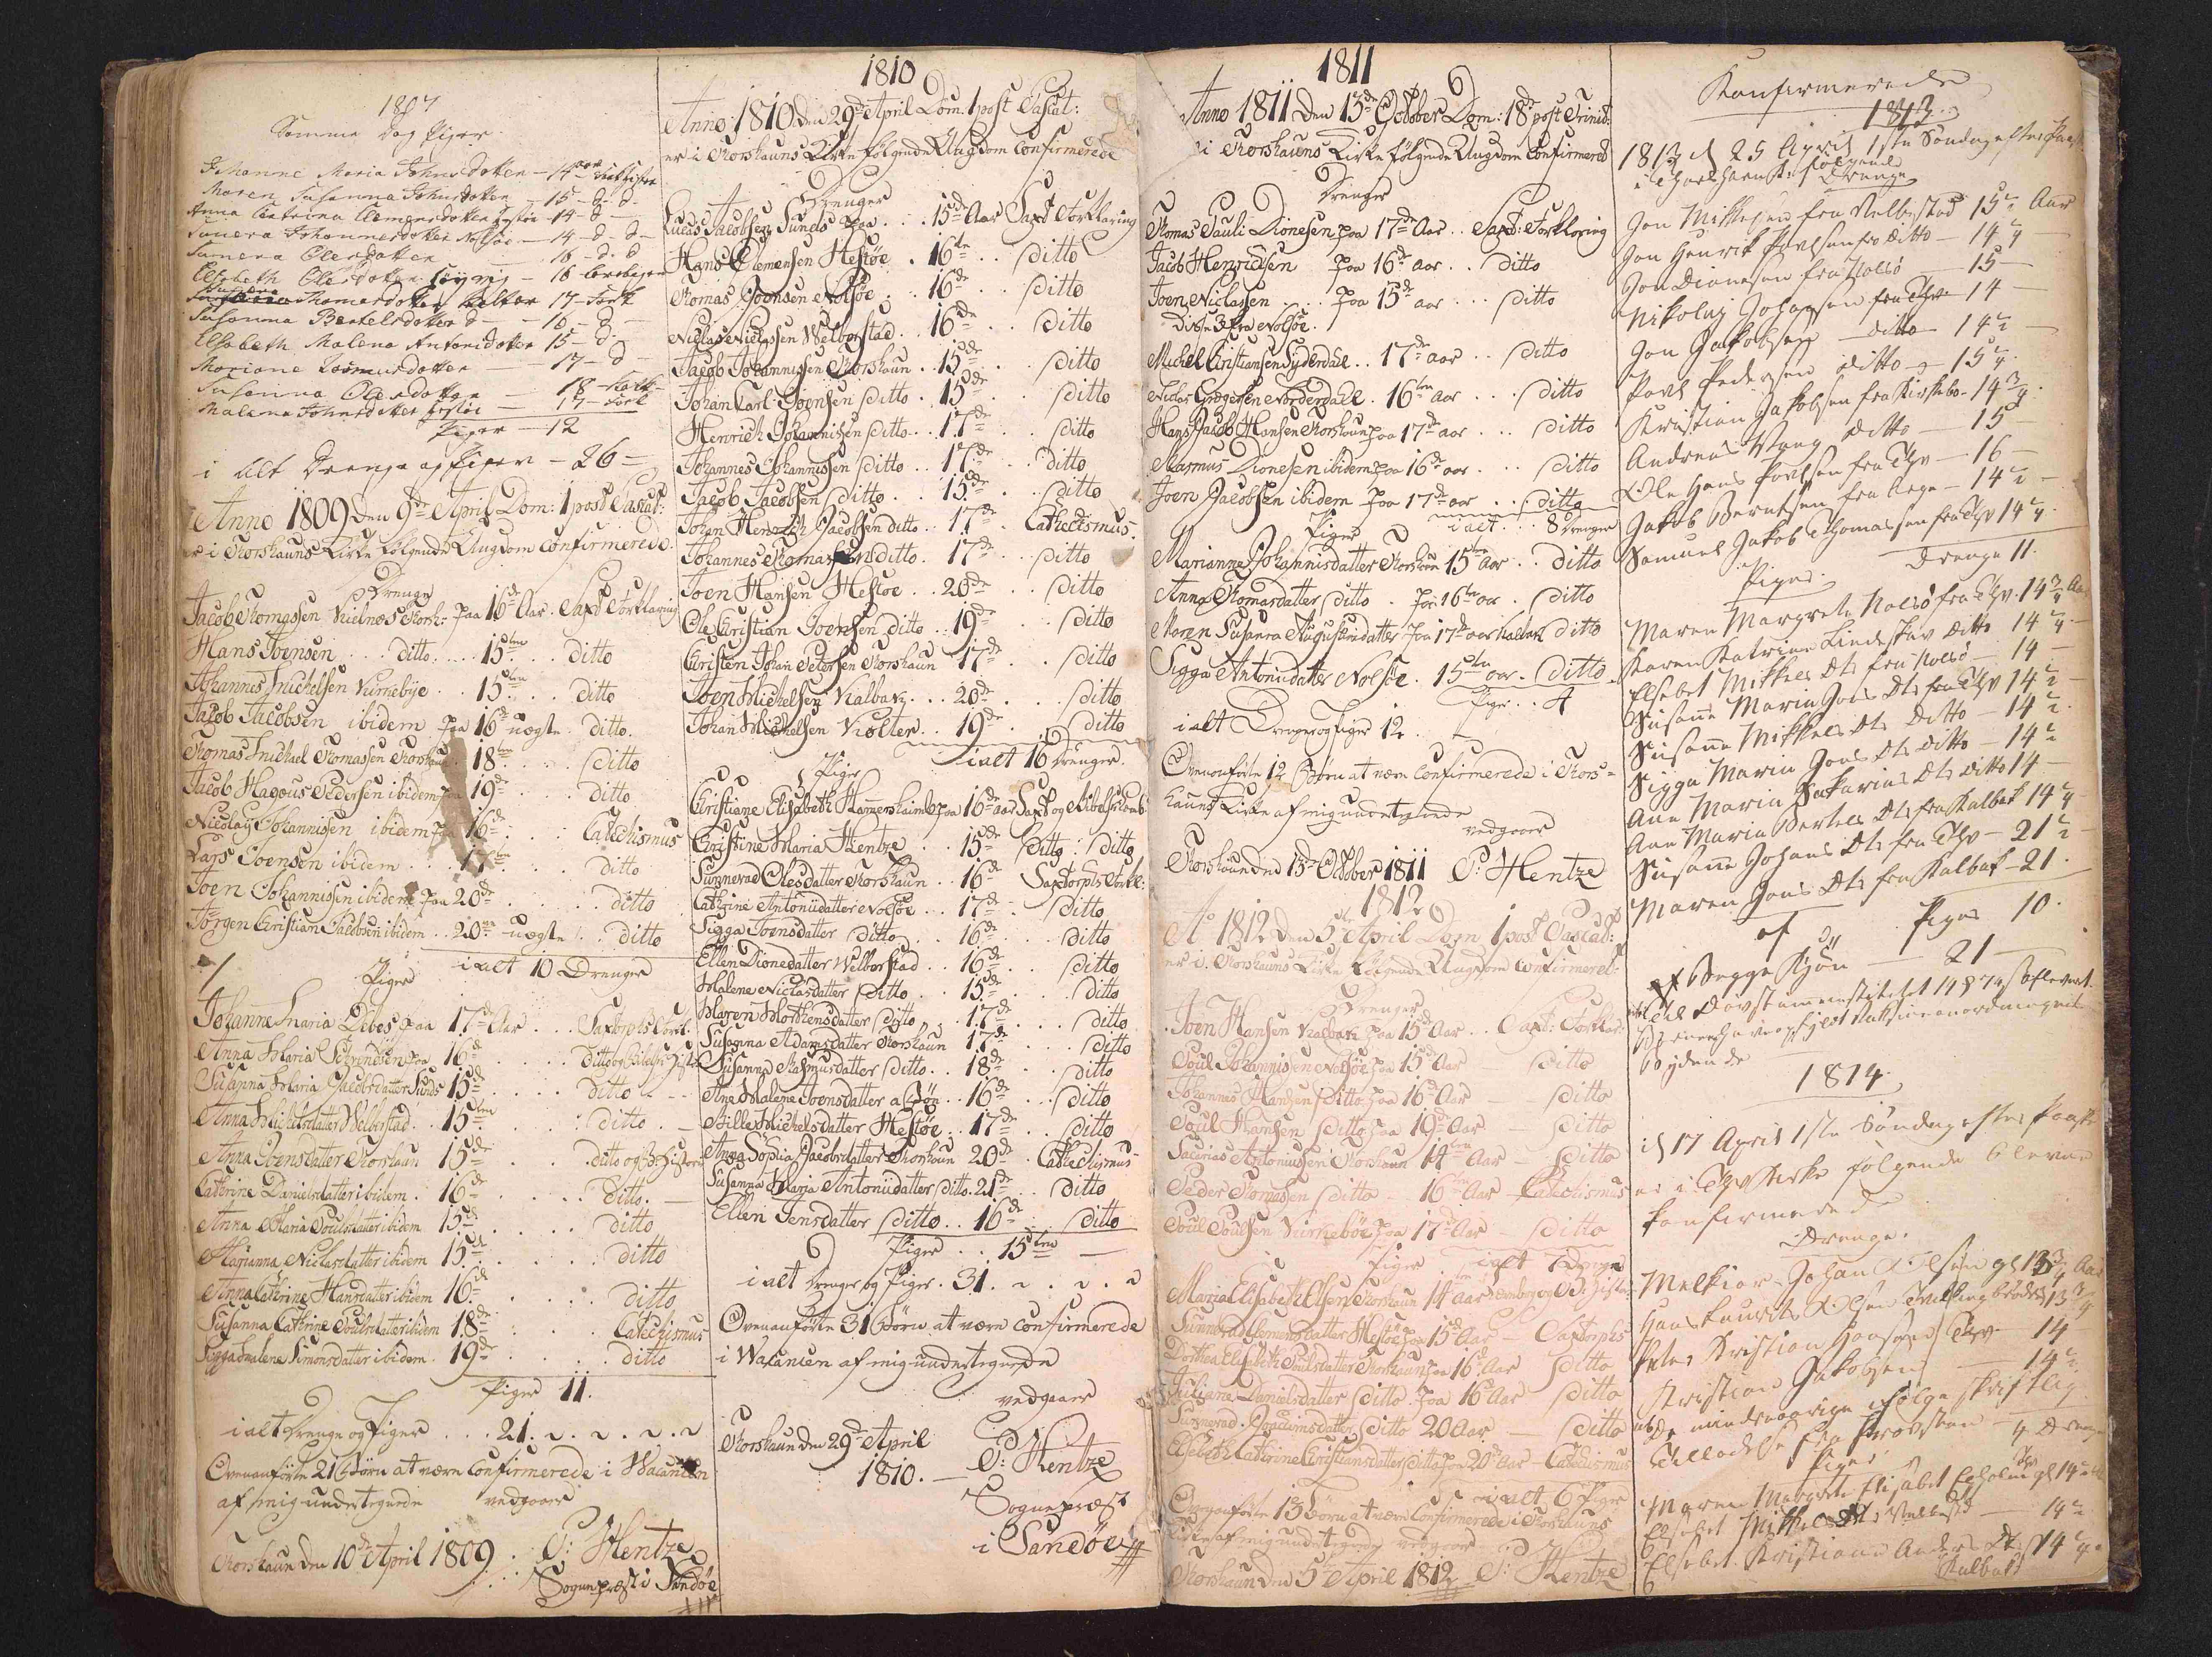 1807
Samme Dag Piger
Johanne Maria Johnsdotter - 14 aar
Maren Susanna Johnsdotter - 15 - d - d -
Anna Catrina Clemensdotter - 14 - d -
Sunera Johannesdotter Nolsøe - 14 - d - d -
Sunera Olesdotter - 16 - d - d
Elsebeth Olesdotter - 16
Thomasdotter Kalbac 17 - Fork
Susanna Bertelsdotter d - 16 - d -
Elsebeth Malena Antonidotter 15 - d -
Mariane - 17 - d -
Susanna Olesdotter - 18 -
Malena Johnsdotter - 17 - Fork
Piger - 12
i Alt Drenge og Piger - 26 -
Anno 1809 den 9de April Dom: 1 post Pascat:
er i Thorshauns Kirke følgende Ungdom Confirmerede.
Drenge
Jacob Thomassen Thorsh: paa 16de Aar. Saxt: Forklaring
Hans Joensen .. ditto .... 15ten ... ditto
Johannes Michelsen Kirkebøe .. 15ten ... ditto
Jacob Jacobsen ibidem paa 16de uægte. ditto.
Thomas Michael Thomassen Thorshaun. 18ten ... ditto
Jacob Magnus Pedersen ibidem paa 19de ... ditto
Nicolaÿ Johannissen ibidem paa 16de ... Catechismus
Lars Joensen ibidem ... ditto
Joen Johannissen ibidem paa 20de ... ditto
Jørgen Christian Jacobsen ibidem .. 20de uægte .. ditto
i alt 10 Drenge
Piger
Johanne Maria Debes paa 17de Aar ... Saxtorphs Fork:
Anna Maria paa 16de ... ditto og
Susanna Maria Jacobsdatter Sunds 15de ... ditto
Anna Michelsdatter Welberstad .. 15ten ... ditto
Anna Joensdatter Thorshaun 15de ... ditto og
Cathrine Danielsdatter ibidem . 16de ... ditto.
Anna Maria Poulsdatter ibidem 15de ... ditto
Marianna Niclasdatter ibidem 15de ... ditto
Anna Cathrine Hansdatter ibidem 16de ... ditto
Susanna Cathrine Poulsdatter ibidem 18de ... Catechismus
Sigga Malene Simonsdatter ibidem . 19de ... ditto
Piger 11.
i alt Drenge og Piger ... 21.
Ovenanførte 21 Børn at være Confirmerede i Vacancen
af mig undertegnede vedgaaes
Thorshaun den 10de April 1809 . P: Hentze
Sognepræst i Sandøe
1810
Anno: 1810 den 29de April Dom. 1 post Pascat:
er i Thorshauns Kirke følgende Ungdom Confirmerede
Drenger
Lucas Jacobsen Sunds paa ... 15de Aar Saxt: Forklaring
Hans Clemensen Hestøe . 16de .. ditto
Thomas Joensen Nolsøe .. 16de .. ditto
Niclas Niclassen Welberstad .. 16de .. ditto
Jacob Johannissen Thorshaun .. 15de .. ditto
Johan Carl Joensen ditto .. 15de .. ditto
Henrich Johannissen ditto .. 17de .. ditto
Johannes Johannissen ditto .. 17de .. ditto
Jacob Jacobsen ditto .. 15de .. ditto
Johan Henrich Jacobsen ditto .. 17de . Cathechismus.
Johannes Thomassen ditto . 17de .. ditto
Joen Hansen Hestøe .. 20de .. ditto
Ole Christian Joensen ditto .. 19de .. ditto
Christen Johan Petersen Thorshaun 17de .. ditto
Joen Michelsen Kalbak ... 20de .. ditto
Johan Michelsen Kiolter .. 19de .. ditto
i alt 16 Drenger.
Piger
Christiane Elisabeth Hammershaimb paa 16de aar Saxt: og
Christine Maria Hentze .. 15de ditto : ditto
Sunnevad Olesdatter Thorshaun .. 16de Saxtorphs Forkl:
Cathrine Antoniidatter Nolsøe ... 17de . ditto
Sigga Joensdatter ditto .. 16de .. ditto
Ellen Dionedatter Welberstad .. 16de .. ditto
Malene Niclasdatter ditto .. 15de .. ditto
Maren Morthensdatter ditto . 17de .. ditto
Susanna Adamsdatter Thorshaun 17de .. ditto
Susanna Rasmusdatter ditto .. 18de .. ditto
Ane Malene Joensdatter a Bøe .. 16de .. ditto
Bille Michelsdatter Hestøe .. 17de .. ditto
Anna Sophia Jacobsdatter Thorshaun 20de . Cathechismus
Susanna Maria Antoniidatter ditto . 21de .. ditto
Ellen Jensdatter ditto .. 16de .. ditto
Piger .. 15ten
i alt Drenge og Piger . 31.
Ovenanførte 31 Børn at være Confirmerede
i Vacancen af mig undertegnede
vedgaaer
Thorshaun den 29de April
1810. P: Hentze
Sognepræst
i Sandøe
1811
Anno 1811 den 13de October Dom: 18de post Trinit:
er i Thorshauns Kirke følgende Ungdom Confirmered
Drenger
Thomas Pauli Dionesen paa 17de Aar .. Saxt: Forklaring
Jacob Henrichsen paa 16de aar .. ditto
Joen Niclassen ... paa 15de aar ... ditto
disse 3 fra Nolsøe.
Michel Christiansen Syderdahl .. 17de aar .. ditto
Niclas Gregersen Norderdahl . 16ten aar ... ditto
Hans Jacob Hansen Thorshaun paa 17de aar ... ditto
Rasmus Dionesen ibidem paa 16de aar ... ditto
Joen Jacobsen ibidem paa 17de aar ... ditto
i alt ... 8 Drenger
Piger
Marianne Johannisdatter Thorshaun 15ten Aar .. ditto
Anna Thomasdatter ditto . paa 16ten aar . ditto
Maren Susanna Augustinidatter paa 17de aar Kalbak ditto
Sigga Antoniidatter Nolsøe . 15ten aar .. ditto
Piger .. 4
i alt Drenger og Piger 12.
Ovenanførte 12 Børn at være Confirmerede i Thors-
hauns Kirke af mig undertegnede
vedgaaer
Thorshaun den 13de October 1811 P: Hentze
1812
Ao 1812 den 5te April Dom 1 post Pascat:
er i Thorshauns Kirke følgende Ungdom Confirmeret:
Drenger
Joen Hansen Kalbak paa 15de Aar .. Saxt: Forklar:
Poul Johannissen Nolsøe paa 15de Aar — ditto
Johannes Hansen ditto paa 16de Aar — ditto
Poul Hansen ditto paa 19de Aar — ditto
Sacarias Antoniussen Thorshaun 14ten Aar — ditto
Peder Thomassen ditto — 16ten Aar Catechismus
Poul Poulsen Kirkebøe paa 17de Aar — ditto
i alt 7 Drenge
Piger
Maria Elisabeth Olsen Thorshaun 14 aar
Sunnevad Clemensdatter Hestøe paa 15de Aar — Saxtorphs
Dorthea Elisabeth Poulsdatter Thorshaun paa 16de Aar ditto
Juliane Danielsdatter ditto paa 16de Aar ditto
Sunnevad Joachimsdatter ditto 20 Aar — ditto
Elsebeth Cathrine Christiansdatter ditto paa 20de Aar — Catechismus
i alt 6 Piger
Ovenanførte 13 Børn at være Confirmerede i Thorshauns
Kirke af mig undertegnede vedgaaer
Thorshaun den 5te April 1812 P: Hentze
Konfirmerede
1813.
1813 d 25 April 1ste Søndag efter Paaske
i Thorshavn K: følgende
Drenge
Jon Mikkelsen fra Velbestad 15 Aar
Jon Henrik Povlsen fra Ditto - 14
Jon Dionesen fra Nolsø - 15 -
Nikolaj Johansen fra Thv - 14 -
Jon Jakobsen ditto - 14
Povl Pedersen ditto - 15
Kristian Jakobsen fra Kirkebø - 14 3/4
Andreas Wang ditto - 15
Ole Hans Povlsen fra Thv - 16 -
Jakob Berntsen fra - 14
Samuel Jakob Thomassen fra Thv 14
Drenge 11.
Piger.
Maren Margrete Nolsø fra Thv. 14 3/4 Aar
Karen Katrine Lindeskov ditto 14
Elsebet Mikkels Dtr fra Nolsø - 14 -
Susanne Marin Jons Dtr fra Thv 14
Susanne Mikkels Dtr Ditto - 14
Sigga Marin Jons Dtr ditto - 14
Ane Marin Sakarias Dtr ditto 14 -
Ane Maria Bertels Dtr fra Kalbak 14
Susanne Johans Dtr fra Thv - 21
Maren Jons Dtr fra Kalbak - 21.
Piger 10.
af
af Begge Kjøn - 21 -
1814.
d 17 April 1ste Søndag efter Paaske
er i Thv Kirke følgende blevne
konfirmerede
Drenge.
Melkior Johan Olsen gl 13 3/4 Aar
Hans Laurits Olsen Tvillingbrødre 13 3/4
Peter Kristian Hansen Thv 14
Kristian Jakobsen - 14
de mindreaarige ifølge skriftlig
Tilladelse fra Provsten - 4 Drenge
Piger
Maren Margrete Elisabet gl 14
Elsebet Mikkels Dtr Velbestad - 14
Elsebet Kristiane Anders Dtr 14
Kalbak